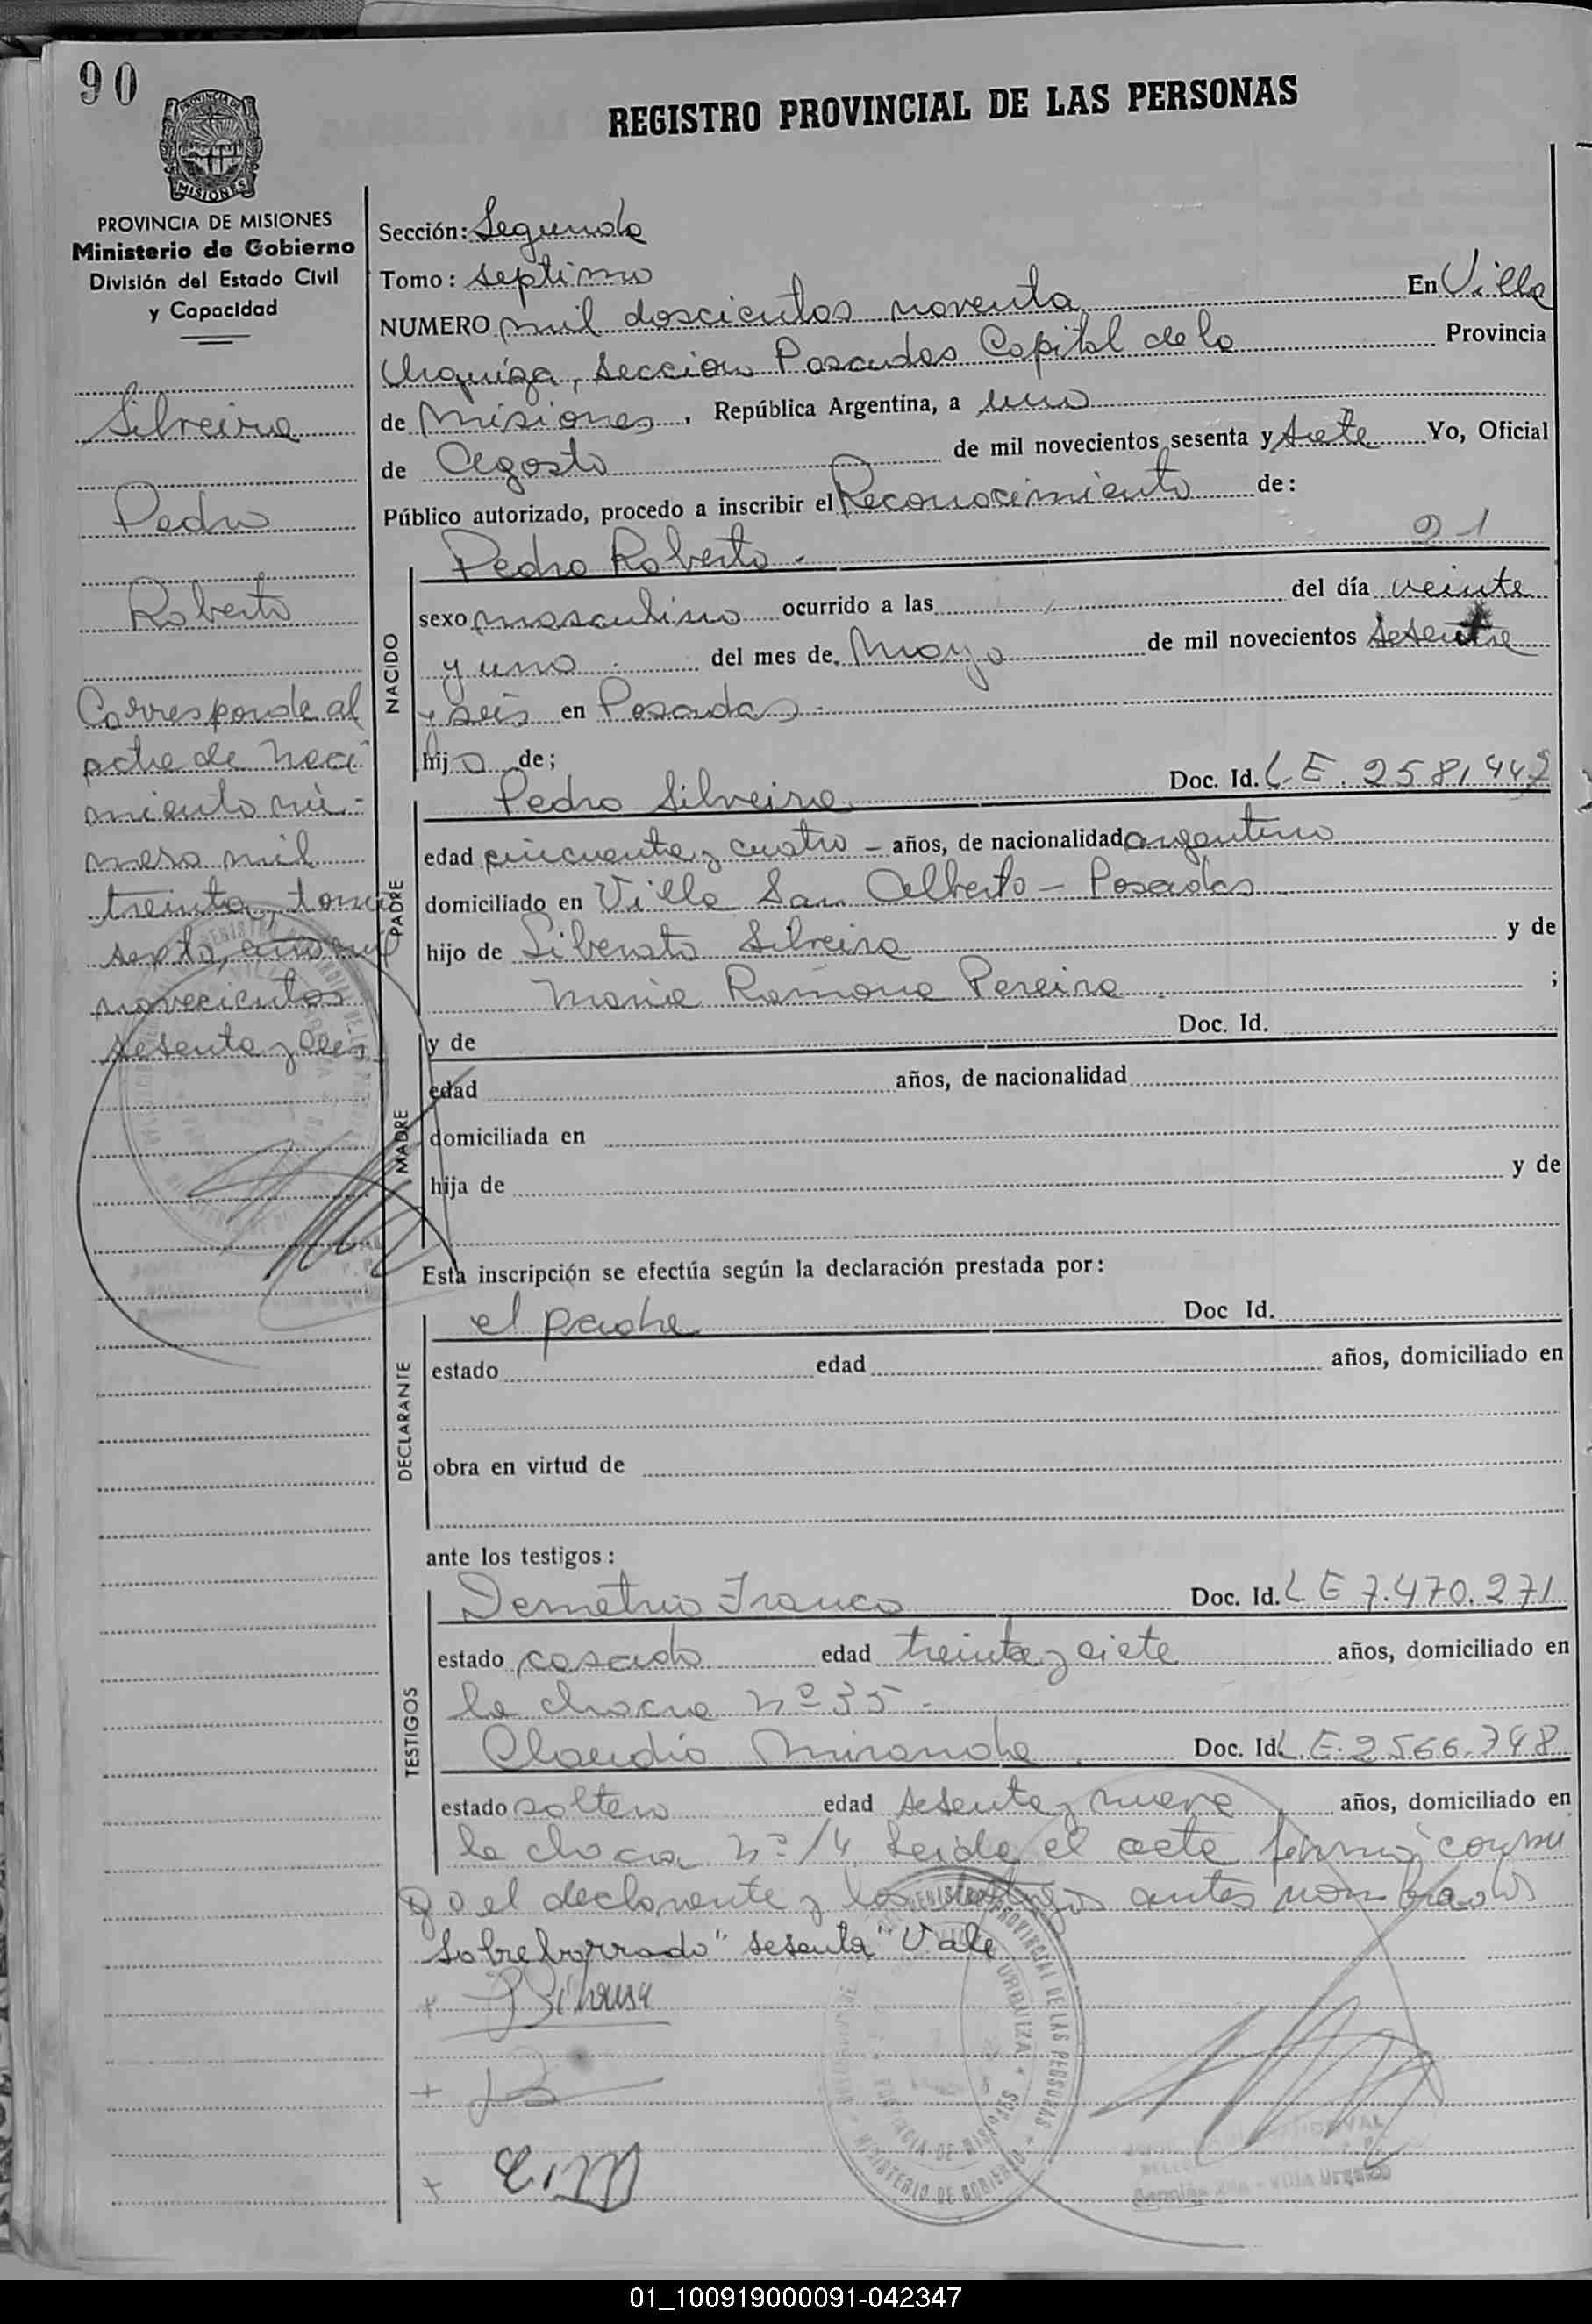 90
PROVINCIA DE
MISIONES
REGISTRO PROVINCIAL DE LAS PERSONAS
PROVINCIA DE MISIONES
Ministerio de Gobierno
División del Estado Civil
y Capacidad
Silveira
Pedro
Roberto
Corresponde al
acta de naci
miento nú-
mero mil
treinta, tomo
sexto, año mil
novecientos
sesenta y seis
Sección: Segunda
Tomo: septimo
NUMERO mil doscientos noventa En Villa
Urquiza, sección Posadas Capital de la Provincia
de Misiones, República Argentina, a uno
de Agosto de mil novecientos sesenta y siete Yo, Oficial
Público autorizado, procedo a inscribir el Reconocimiento de:
21
NACIDO
Pedro Roberto -
sexo masculino ocurrido a las del día veinte
y uno del mes de Mayo de mil novecientos sesenta
y seis en Posadas -
hijo de;
PADRE
Pedro Silveira Doc. Id. L.E. 2581442
edad cincuenta y cuatro - años, de nacionalidad argentino
domiciliado en Villa San Alberto - Posadas
hijo de Liberato Silveira y de
Maria Ramona Pereira ;
MADRE
y de Doc. Id.
edad años, de nacionalidad
domiciliada en
hija de y de
Esta inscripción se efectúa según la declaración prestada por:
DECLARANTE
el padre Doc Id.
estado edad años, domiciliado en
obra en virtud de
ante los testigos:
TESTIGOS
Demetrio Franco Doc. Id. L E 7.470.271
estado casado edad treinta y siete años, domiciliado en
la chacra nº 35 -
Claudio Miranda Doc. Id. L.E. 2566.748
estado soltero edad sesenta y nueve años, domiciliado en
la chacra nº 14 Leida el acta firmó conmi
go el declarante y los testigos antes nombrados
Sobreborrado "sesenta" Vale
REGISTRO PROVINCIAL DE LAS PERSONAS
MINISTERIO DE GOBIERNO
PROVINCIA DE MISIONES
URQUIZA
Villa Urquiza
01_100919000091-042347